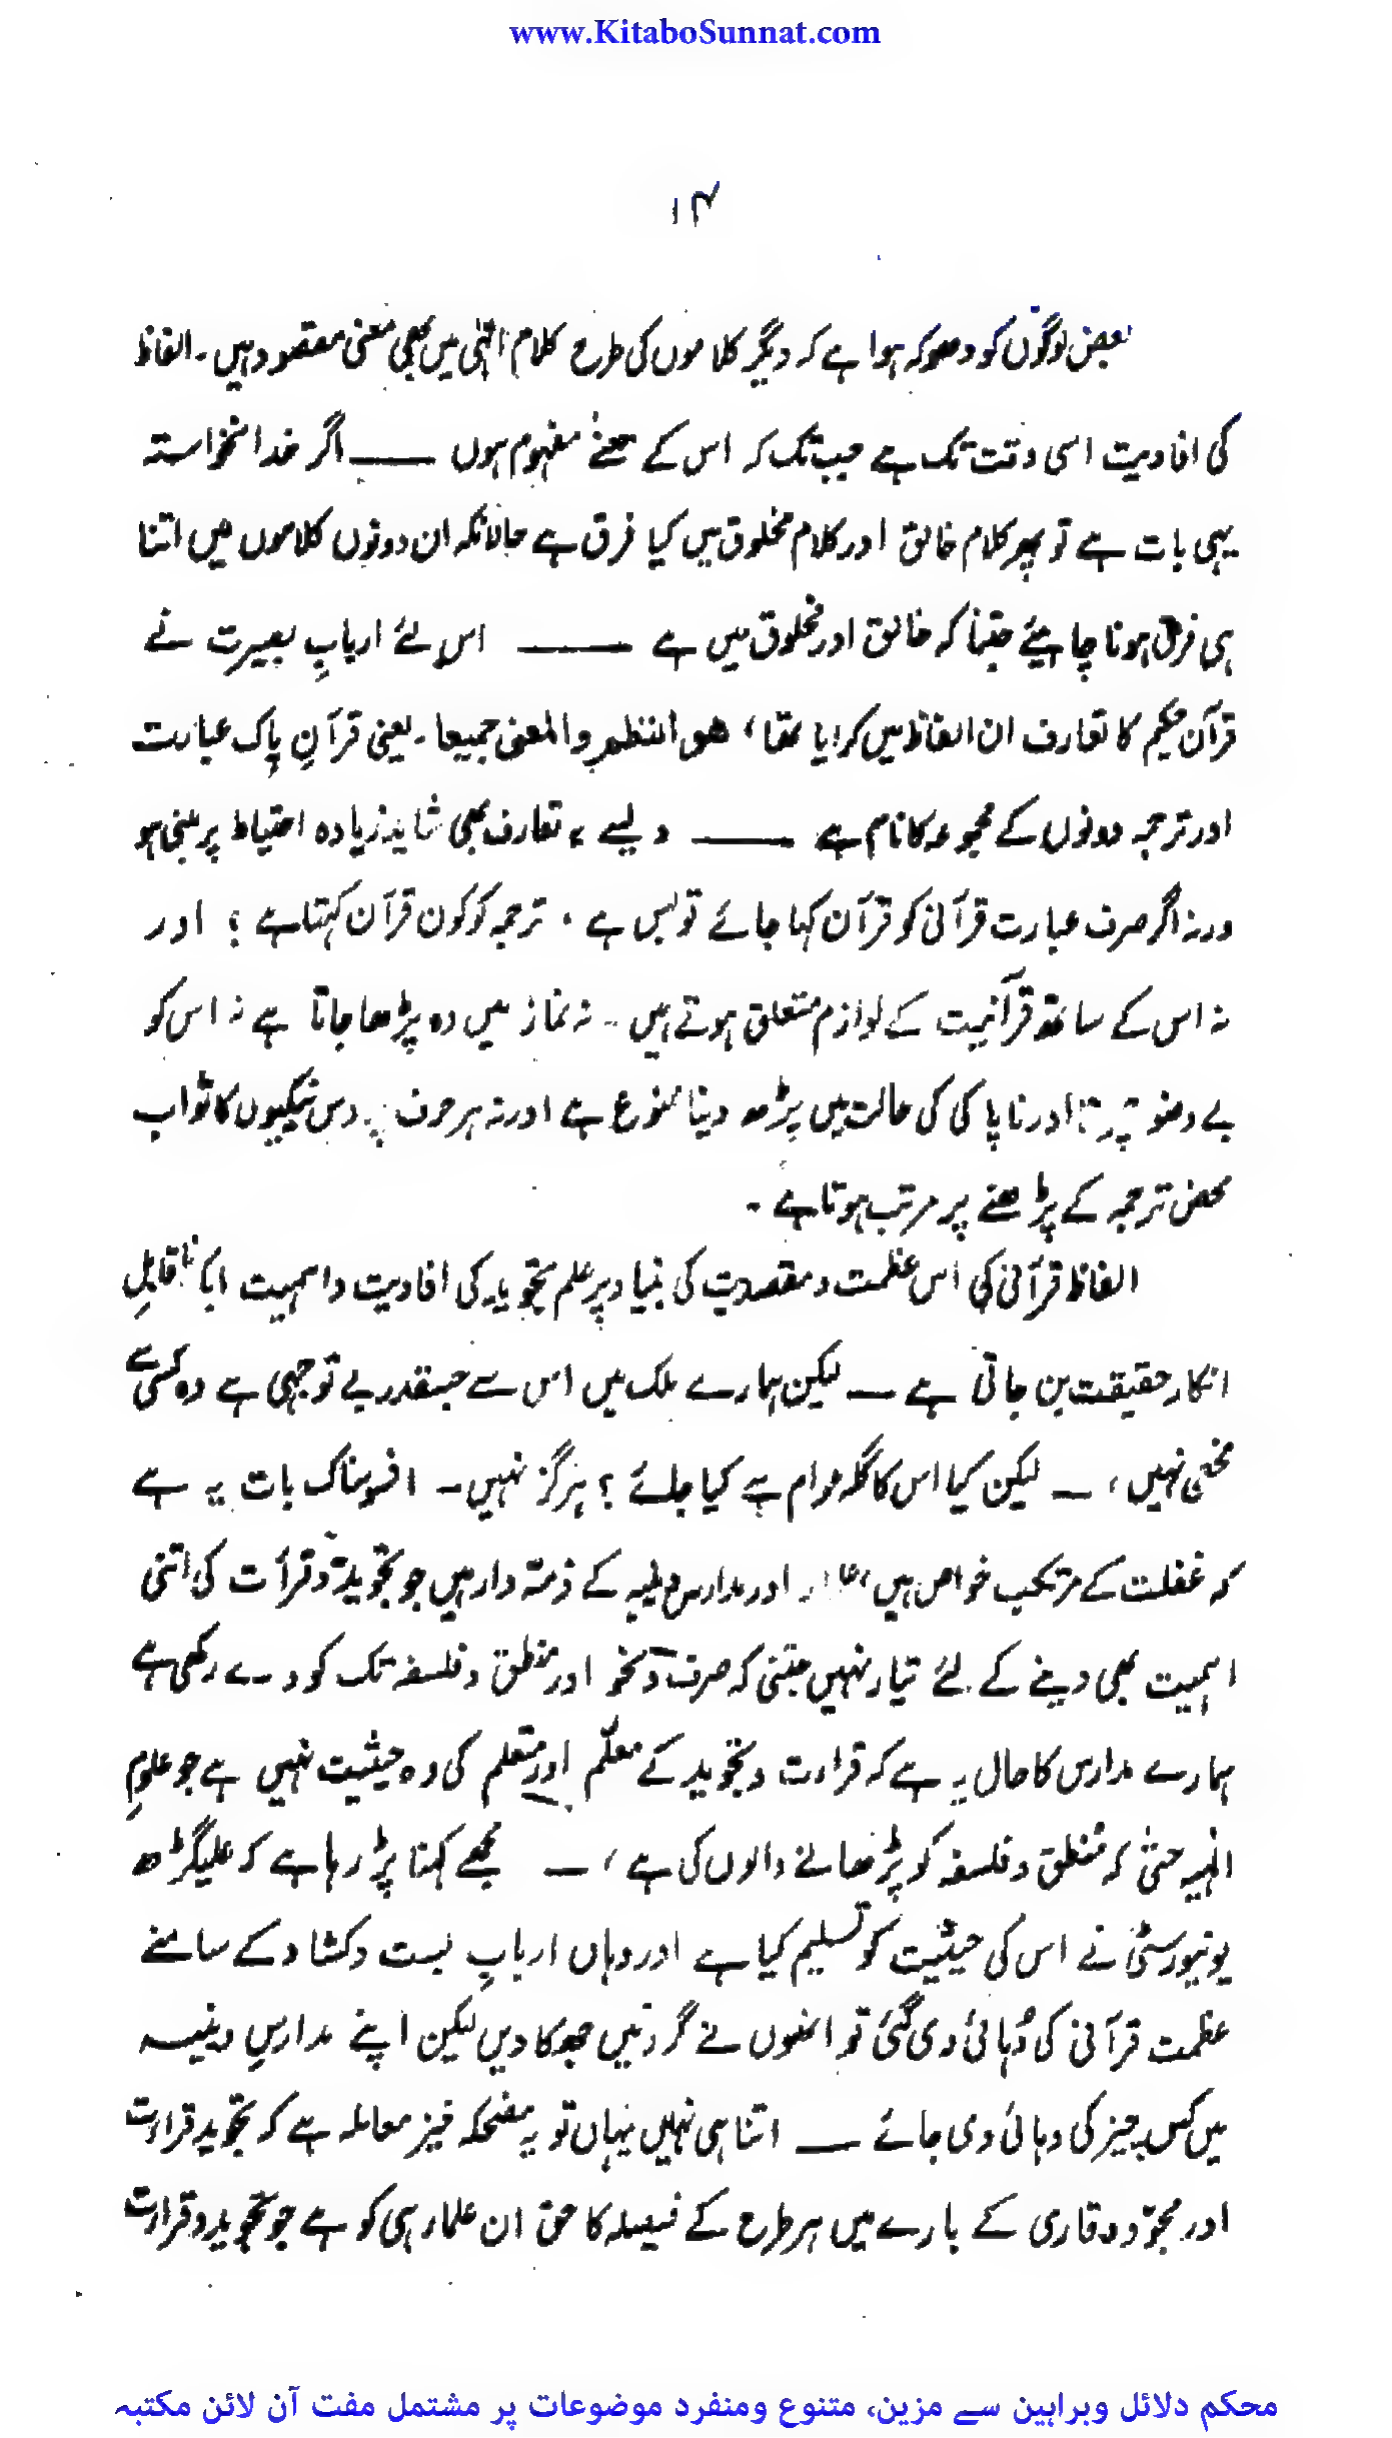 www.KitaboSunnat.com
۱۴
بعض لوگوں کو دھوکہ ہوا ہے کہ دیگر کلاموں کی طرح کلام الٰہی میں بھی معنی مقصود ہیں۔ الفاظ
کی افادیت اسی وقت تک ہے جب تک کہ اس کے معنے مفہوم ہوں —— اگر خدانخواستہ
یہی بات ہے تو پھر کلام خالق اور کلام مخلوق میں کیا فرق ہے حالانکہ ان دونوں کلاموں میں اتنا
ہی فرق ہونا چاہیئے جتنا کہ خالق اور مخلوق میں ہے —— اس لئے اربابِ بصیرت نے
قرآن حکیم کا تعارف ان الفاظ میں کرایا تھا، ھو النظم والمعنی جمیعا۔ یعنی قرآنِ پاک عبارت
اور ترجمہ دونوں کے مجموعہ کا نام ہے —— ویسے یہ تعارف بھی شاید زیادہ احتیاط پر مبنی ہو
ورنہ اگر صرف عبارت قرآنی کو قرآن کہا جائے تو بس ہے۔ ترجمہ کو کون قرآن کہتا ہے؟ اور
نہ اس کے ساتھ قرآنیت کے لوازم متعلق ہوتے ہیں۔ نہ نماز میں وہ پڑھا جاتا ہے نہ اس کو
بے وضو اور ناپاکی کی حالت میں پڑھ دینا ممنوع ہے اور نہ ہر حرف پہ دس نیکیوں کا ثواب
محض ترجمہ کے پڑھنے پر مرتب ہوتا ہے۔
الفاظ قرآنی کی اس عظمت و مقصدیت کی بنیاد پر علم تجوید کی افادیت و اہمیت ایک ناقابلِ
انکار حقیقت بن جاتی ہے — لیکن ہمارے ملک میں اس سے جسقدر بے توجہی ہے وہ کسی سے
مخفی نہیں، — لیکن کیا اس کا گلہ عوام سے کیا جائے؟ ہرگز نہیں۔ افسوسناک بات یہ ہے
کہ غفلت کے مرتکب خواص ہیں، اور مدارس کے ذمّہ دار ہیں جو تجوید و قرأت کی اتنی
اہمیت بھی دینے کے لئے تیار نہیں جتنی کہ صرف و نحو اور منطق و فلسفہ تک کو دے رکھی ہے
ہمارے مدارس کا حال یہ ہے کہ قراءت و تجوید کے معلّم اور متعلم کی وہ حیثیت نہیں ہے جو علومِ
الٰہیہ حتیٰ کہ منطق و فلسفہ کو پڑھانے والوں کی ہے، — مجھے کہنا پڑ رہا ہے کہ علیگڑھ
یونیورسٹی نے اس کی حیثیت کو تسلیم کیا ہے اور وہاں اربابِ بست و کشاد کے سامنے
عظمت قرآنی کی دُہائی دی گئی تو انھوں نے گردنیں جھکا دیں لیکن اپنے مدارسِ دینیہ
میں کس چیز کی دہائی دی جائے — اتنا ہی نہیں یہاں تو یہ مضحکہ خیز معاملہ ہے کہ تجوید قراءت
اور مجوّد و قاری کے بارے میں ہر طرح کے فیصلہ کا حق ان علماء ہی کو ہے جو تجوید و قراءت
محکم دلائل وبراہین سے مزین، متنوع ومنفرد موضوعات پر مشتمل مفت آن لائن مکتبہ